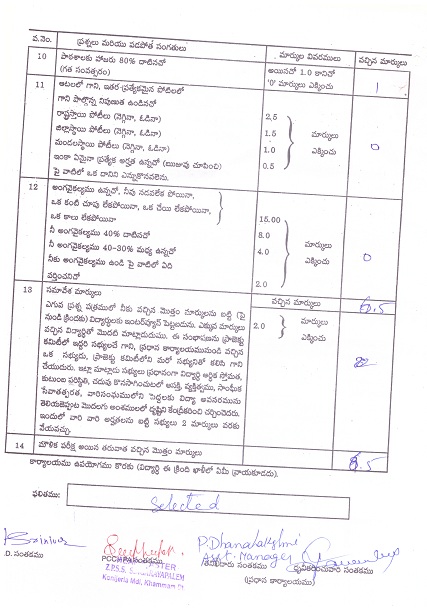 వ.నెం. ప్రశ్నలు మరియు పడపోత సంగతులు మార్కుల వివరములు వచ్చిన మార్కులు
10 పాఠశాలకు హాజరు 80% దాటినదో అయినదో 1.0 కానిదో 1
(గత సంవత్సరం) '0' మార్కులు ఎక్కించు
11 ఆటలలో గాని, ఇతర ప్రత్యేకమైన పోటీలలో
గాని పాల్గొన్న నిపుణుత ఉండినదో
రాష్ట్రస్థాయి పోటీలు (నెగ్గినా, ఓడినా) 2.5
జిల్లాస్థాయి పోటీలు (నెగ్గినా, ఓడినా) 1.5 మార్కులు 0
మండలస్థాయి పోటీలు (నెగ్గినా, ఓడినా) 1.0 ఎక్కించు
ఇంకా ఏమైనా ప్రత్యేక అర్హత ఉన్నదో (ఋజువు చూపించి) 0.5
పై వాటిలో ఒక దానిని ఎన్నుకొనవలెను.
12 అంగవైకల్యము ఉన్నదో, నీవు నడవలేక పోయినా,
ఒక కంటి చూపు లేకపోయినా, ఒక చేయి లేకపోయినా, 15.00
ఒక కాలు లేకపోయినా
నీ అంగవైకల్యము 40% దాటినదో 8.0 మార్కులు
నీ అంగవైకల్యము 40-30% మధ్య ఉన్నదో 4.0 ఎక్కించు 0
నీకు అంగవైకల్యము ఉండి పై వాటిలో ఏది
వర్తించనిదో 2.0
13 సమావేశ మార్కులు వచ్చిన మార్కులు 6.5
ఎగువ ప్రశ్న పత్రములో నీకు వచ్చిన మొత్తం మార్కులను బట్టి (పై
నుండి క్రిందకు) విద్యార్థులకు ఇంటర్వ్యూకై పెట్టబడును. ఎక్కువ మార్కులు 2.0 మార్కులు
వచ్చిన విద్యార్థితో మొదటి మాట్లాడుదుము. ఈ సంభాషణను ప్రాజెక్టు ఎక్కించు
కమిటీలో ఇద్దరి సభ్యులచే గాని, ప్రధాన కార్యాలయమునుండి వచ్చిన 2
ఒక సభ్యుడు, ప్రాజెక్టు కమిటీలోని మరో సభ్యునితో కలిసి గాని
చేయుదురు. ఇట్లా మాట్లాడు సభ్యులు ప్రధానంగా విద్యార్థి ఆర్థిక స్తోమత,
కుటుంబ పరిస్థితి, చదువు కొనసాగించుటలో ఆసక్తి, వ్యక్తిత్వము, సాంఘిక
సేవాతత్పరత, వారిసంఘములోని పెద్దలకు విద్యా అవసరమును
తెలియజెప్పుట మొదలగు అంశములలో దృష్టిని కేంద్రీకరించి చర్చించెదరు.
ఇందులో వారి వారి అర్హతలను బట్టి సభ్యులు 2 మార్కులు వరకు
వేయవచ్చు.
14 మౌళిక పరీక్ష అయిన తరువాత వచ్చిన మొత్తం మార్కులు 8.5
కార్యాలయము ఉపయోగము కొరకు (విద్యార్థి ఈ క్రింది ఖాళీలో ఏమీ వ్రాయకూడదు).
ఫలితము: Selected
P. Dhanalakshmi
Asst. Manager
.D. సంతకము సంతకము ధృవీకరించువారి సంతకము
Z.P.S.S.
Konijerla Mdl, Khammam Dt (ప్రధాన కార్యాలయము)